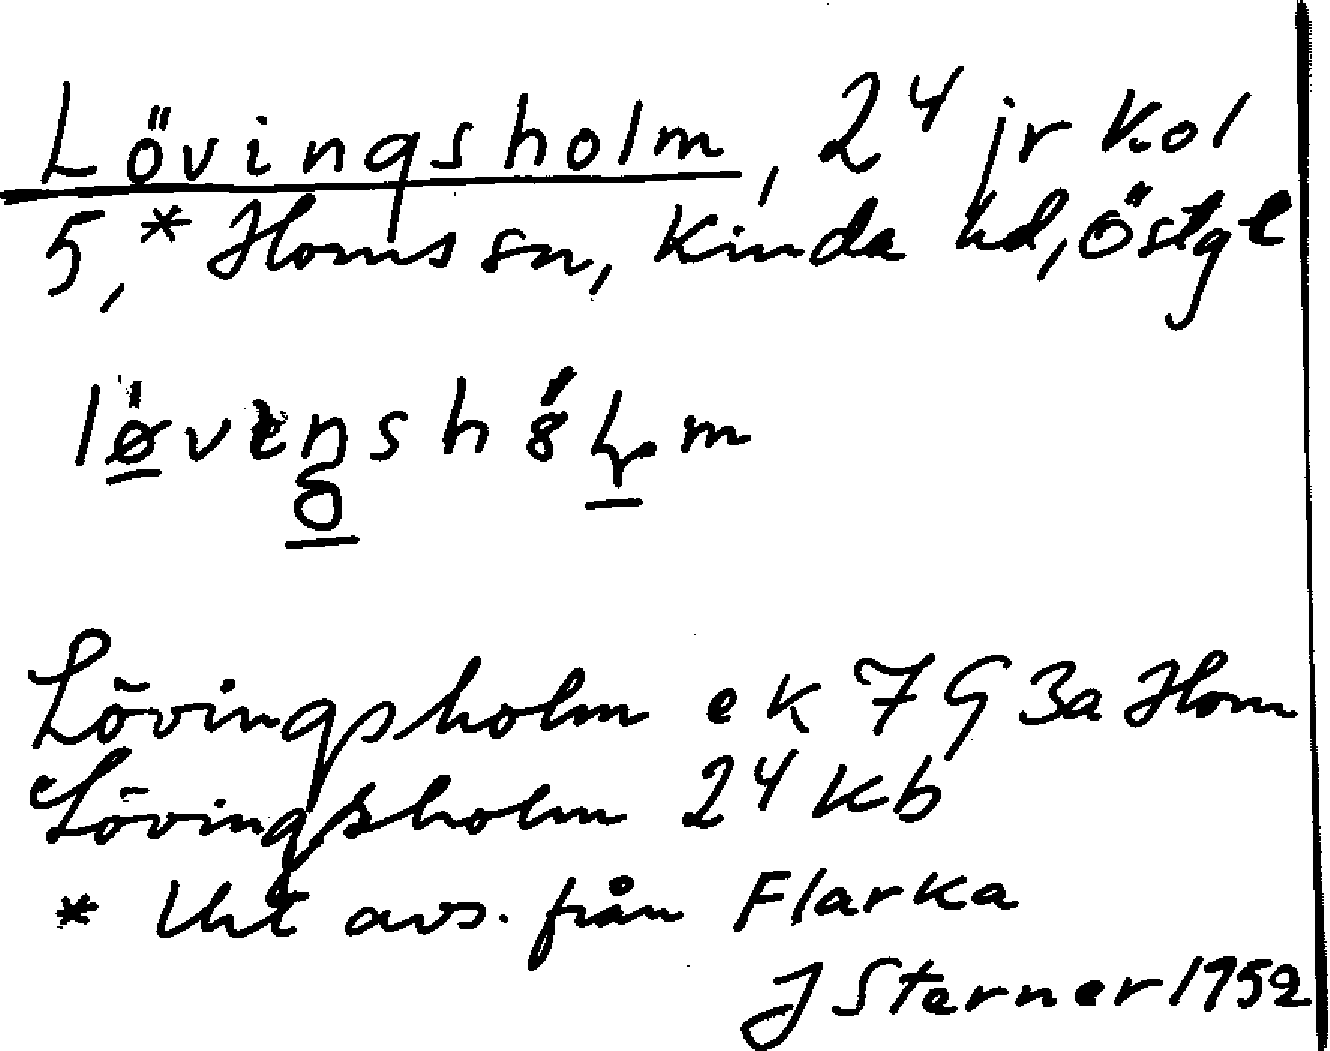 Lövingsholm, 24 jr Kol
5,* Homs sn, Kinda hd, Östgl
Lövingsholm ek 7G 3a Hom
Lövingsholm 24 Kb
* Uht avs. från Flarka
J Sterner 1952